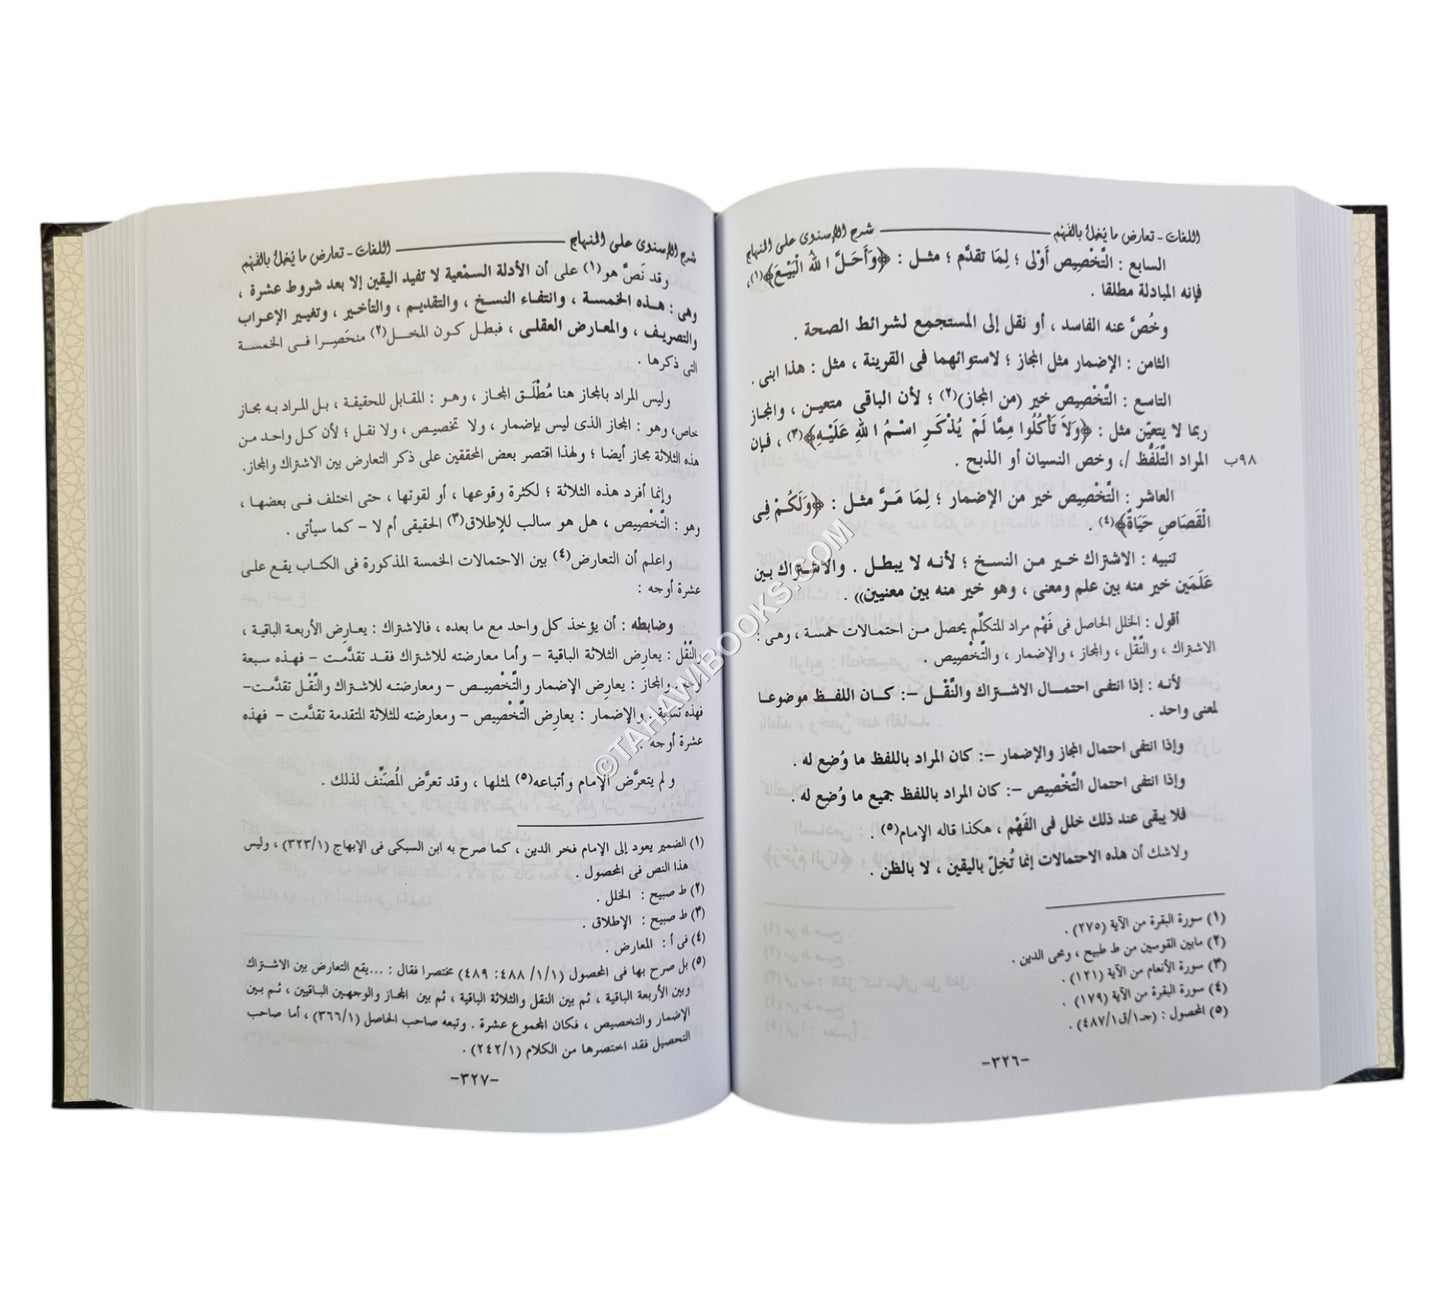 اللغات - تعارض ما يُخل بالفَهْم شرح الإسنوى على المنهاج
السابع : التَّخْصِيص أَوْلى ؛ لِمَا تقدَّم ؛ مثل : ﴿وَأَحَلَّ اللهُ الْبَيْعَ﴾(١)،
فإنه المبادلة مطلقا .
وخُصَّ عنه الفاسد ، أو نقل إلى المستجمِع لشرائط الصحة .
الثامن : الإضمار مثل المجاز ؛ لاستوائهما فى القرينة ، مثل : هذا ابنى .
التاسع : التَّخْصِيص خير (من المجاز)(٢) ؛ لأن الباقى متعين ، والمجاز
ربما لا يتعيَّن مثل : ﴿وَلاَ تَأْكُلُوا مِمَّا لَمْ يُذْكَرِ اسْمُ اللهِ عَلَيْهِ﴾(٣) ، فإن
المراد التَّلَفُّظ /، وخص النسيان أو الذبح . ٩٨ب
العاشر : التَّخْصِيص خير من الإضمار ؛ لِمَا مَرَّ مثل : ﴿وَلَكُمْ فِى
الْقَصَاصِ حَيَاةٌ﴾(٤) .
تنبيه : الاشتراك خير من النسخ ؛ لأنه لا يبطل . والاشتراك بين
عَلَمَين خير منه بين علم ومعنى ، وهو خير منه بين معنيين)) .
أقول : الخلل الحاصل فى فَهْم مراد المتكلِّم يحصل من احتمالات خمسة ، وهى :
الاشتراك ، والنَّقْل ، والمجاز ، والإضمار ، والتَّخْصِيص .
لأنه : إذا انتفى احتمال الاشتراك والنَّقْل –: كان اللفظ موضوعا
لمعنى واحد .
وإذا انتفى احتمال المجاز والإضمار –: كان المراد باللفظ ما وُضع له .
وإذا انتفى احتمال التَّخْصِيص –: كان المراد باللفظ جميع ما وُضع له .
فلا يبقى عند ذلك خلل فى الفَهْم ، هكذا قاله الإمام(٥) .
ولاشك أن هذه الاحتمالات إنما تُخِلّ باليقين ، لا بالظن .
(١) سورة البقرة من الآية (٢٧٥) .
(٢) مابين القوسين من ط طبيح ، ومحى الدين .
(٣) سورة الأنعام من الآية (١٢١) .
(٤) سورة البقرة من الآية (١٧٩) .
(٥) المحصول : (جـ١/ق٤٨٧/١) .
–٣٢٦–
شرح الإسنوى على المنهاج اللغات - تعارض ما يُخل بالفَهْم
وقد نَصَّ هو(١) على أن الأدلة السمْعية لا تفيد اليقين إلا بعد شروط عشرة ،
وهى : هذه الخمسة ، وانتفاء النسخ ، والتقديم ، والتأخير ، وتغيير الإعراب
والتصريف ، والمعارض العقلى ، فبطل كون المخل(٢) منحَصِرا فى الخمسة
التى ذكرها .
وليس المراد بالمجاز هنا مُطْلَق المجاز ، وهو : المقابل للحقيقة ، بل المراد به مجاز
خاص، وهو : المجاز الذى ليس بإضمار ، ولا تخصيص ، ولا نقل ؛ لأن كل واحد من
هذه الثلاثة مجاز أيضا ؛ ولهذا اقتصر بعض المحققين على ذكر التعارض بين الاشتراك والمجاز.
وإنما أفرد هذه الثلاثة ؛ لكثرة وقوعها ، أو لقوتها ، حتى اختلف فى بعضها ،
وهو : التَّخْصِيص ، هل هو سالب للإطلاق(٣) الحقيقى أم لا – كما سيأتى .
واعلم أن التعارض(٤) بين الاحتمالات الخمسة المذكورة فى الكتاب يقع على
عشرة أوجه :
وضابطه : أن يؤخذ كل واحد مع ما بعده ، فالاشتراك : يعارِض الأربعة الباقية ،
والنَّقْل : يعارِض الثلاثة الباقية – وأما معارضته للاشتراك فقد تقدَّمت – فهذه سبعة
والمجاز : يعارِض الإضمار والتَّخْصِيص – ومعارضته للاشتراك والنَّقْل تقدَّمت–
فهذه تسعة . والإضمار : يعارِض التَّخْصِيص – ومعارضته للثلاثة المتقدمة تقدَّمت – فهذه
عشرة أوجه .
ولم يتعرَّض الإمام وأتباعه(٥) لمثلها ، وقد تعرَّض المُصَنِّف لذلك .
(١) الضمير يعود إلى الإمام فخر الدين ، كما صرح به ابن السبكى فى الإبهاج (٣٢٣/١) ، وليس
هذا النص فى المحصول .
(٢) ط صبيح : الخلل .
(٣) ط صبيح : الإطلاق .
(٤) فى أ : المعارض .
(٥) بل صرح بها فى المحصول (١/١/ ٤٨٨: ٤٨٩) مختصرا فقال : ...يقع التعارض بين الاشتراك
وبين الأربعة الباقية ، ثم بين النقل والثلاثة الباقية ، ثم بين المجاز والوجهين الباقيين ، ثم بين
الإضمار والتخصيص ، فكان المجموع عشرة . وتبعه صاحب الحاصل (٣٦٦/١) ، أما صاحب
التحصيل فقد اختصرها من الكلام (٢٤٢/١) .
–٣٢٧–
©TAHAWIBOOKS.COM